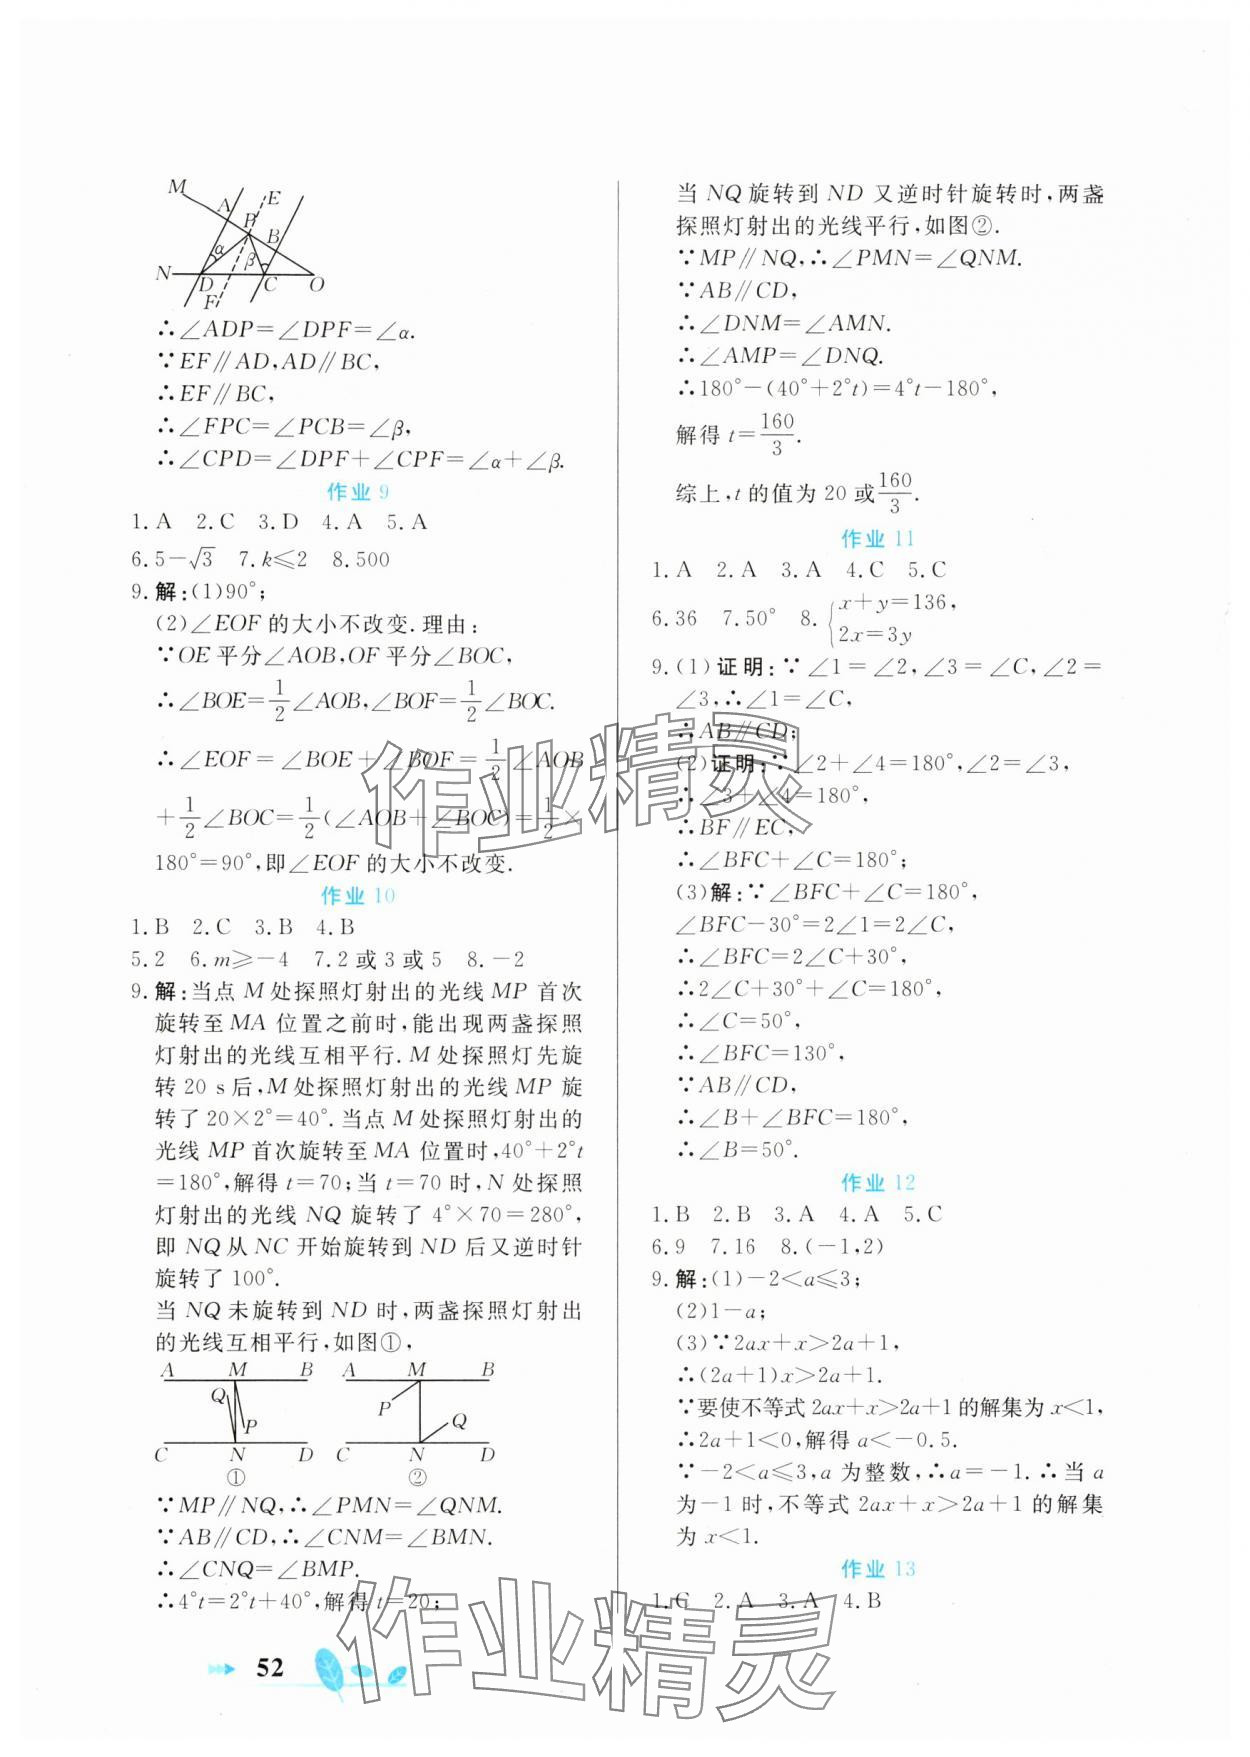 M
A
P
E
α
β
B
N
D
C
O
F
∴∠ADP=∠DPF=∠α.
∵EF∥AD,AD∥BC,
∴EF∥BC,
∴∠FPC=∠PCB=∠β,
∴∠CPD=∠DPF+∠CPF=∠α+∠β.
作业 9
1.A 2.C 3.D 4.A 5.A
6.5-√3 7.k≤2 8.500
9.解:(1)90°;
(2)∠EOF 的大小不改变.理由:
∵OE平分∠AOB,OF平分∠BOC,
∴∠BOE=1/2∠AOB,∠BOF=1/2∠BOC.
∴∠EOF=∠BOE+∠BOF=1/2∠AOB
+1/2∠BOC=1/2(∠AOB+∠BOC)=1/2×
180°=90°,即∠EOF 的大小不改变.
作业 10
1.B 2.C 3.B 4.B
5.2 6.m≥-4 7.2 或 3 或 5 8.-2
9.解:当点 M 处探照灯射出的光线 MP 首次
旋转至 MA 位置之前时,能出现两盏探照
灯射出的光线互相平行.M 处探照灯先旋
转 20 s 后,M 处探照灯射出的光线 MP 旋
转了 20×2°=40°.当点 M 处探照灯射出的
光线 MP 首次旋转至 MA 位置时,40°+2°t
=180°,解得 t=70;当 t=70 时,N 处探照
灯射出的光线 NQ 旋转了 4°×70=280°,
即 NQ 从 NC 开始旋转到 ND 后又逆时针
旋转了 100°.
当 NQ 未旋转到 ND 时,两盏探照灯射出
的光线互相平行,如图①,
A M B A M B
Q P P Q
C N D C N D
① ②
∵MP∥NQ,∴∠PMN=∠QNM.
∵AB∥CD,∴∠CNM=∠BMN.
∴∠CNQ=∠BMP.
∴4°t=2°t+40°,解得 t=20;
52
当 NQ 旋转到 ND 又逆时针旋转时,两盏
探照灯射出的光线平行,如图②.
∵MP∥NQ,∴∠PMN=∠QNM.
∵AB∥CD,
∴∠DNM=∠AMN.
∴∠AMP=∠DNQ.
∴180°-(40°+2°t)=4°t-180°,
解得 t=160/3.
综上,t 的值为 20 或160/3.
作业 11
1.A 2.A 3.A 4.C 5.C
6.36 7.50° 8.{x+y=136,
2x=3y
9.(1)证明:∵∠1=∠2,∠3=∠C,∠2=
∠3,∴∠1=∠C,
∴AB∥CD;
(2)证明:∵∠2+∠4=180°,∠2=∠3,
∴∠3+∠4=180°,
∴BF∥EC,
∴∠BFC+∠C=180°;
(3)解:∵∠BFC+∠C=180°,
∠BFC-30°=2∠1=2∠C,
∴∠BFC=2∠C+30°,
∴2∠C+30°+∠C=180°,
∴∠C=50°,
∴∠BFC=130°,
∵AB∥CD,
∴∠B+∠BFC=180°,
∴∠B=50°.
作业 12
1.B 2.B 3.A 4.A 5.C
6.9 7.16 8.(-1,2)
9.解:(1)-2<a≤3;
(2)1-a;
(3)∵2ax+x>2a+1,
∴(2a+1)x>2a+1.
∵要使不等式 2ax+x>2a+1 的解集为 x<1,
∴2a+1<0,解得 a<-0.5.
∵-2<a≤3,a 为整数,∴a=-1.∴当 a
为-1 时,不等式 2ax+x>2a+1 的解集
为 x<1.
作业 13
1.C 2.A 3.A 4.B
作业精灵
作业精灵